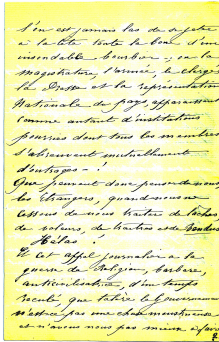 l'on est jamais las de se jeter
à la tête toute la boue d'un
insondable bourbier, où la
magistrature l'armée le clergé
la Presse et la représentation
Nationale du pays, apparaissent
comme autant d'institutions
pourries dont tous les membres
s'abreuvent mutuellement
d'outrages — !
Que peuvent donc penser de nous
les Etrangers, quand nous ne
cessons de nous traiter de lâches,
de voleurs, de traîtres et de vendus
Hélas !
Et cet appel journalier à la
guerre de Religion, barbare,
anticivilisatrice, d'un temps
reculé, que tolère le Gouvernement
n'est-ce pas une chose monstrueuse
et n'avons nous pas mieux à faire